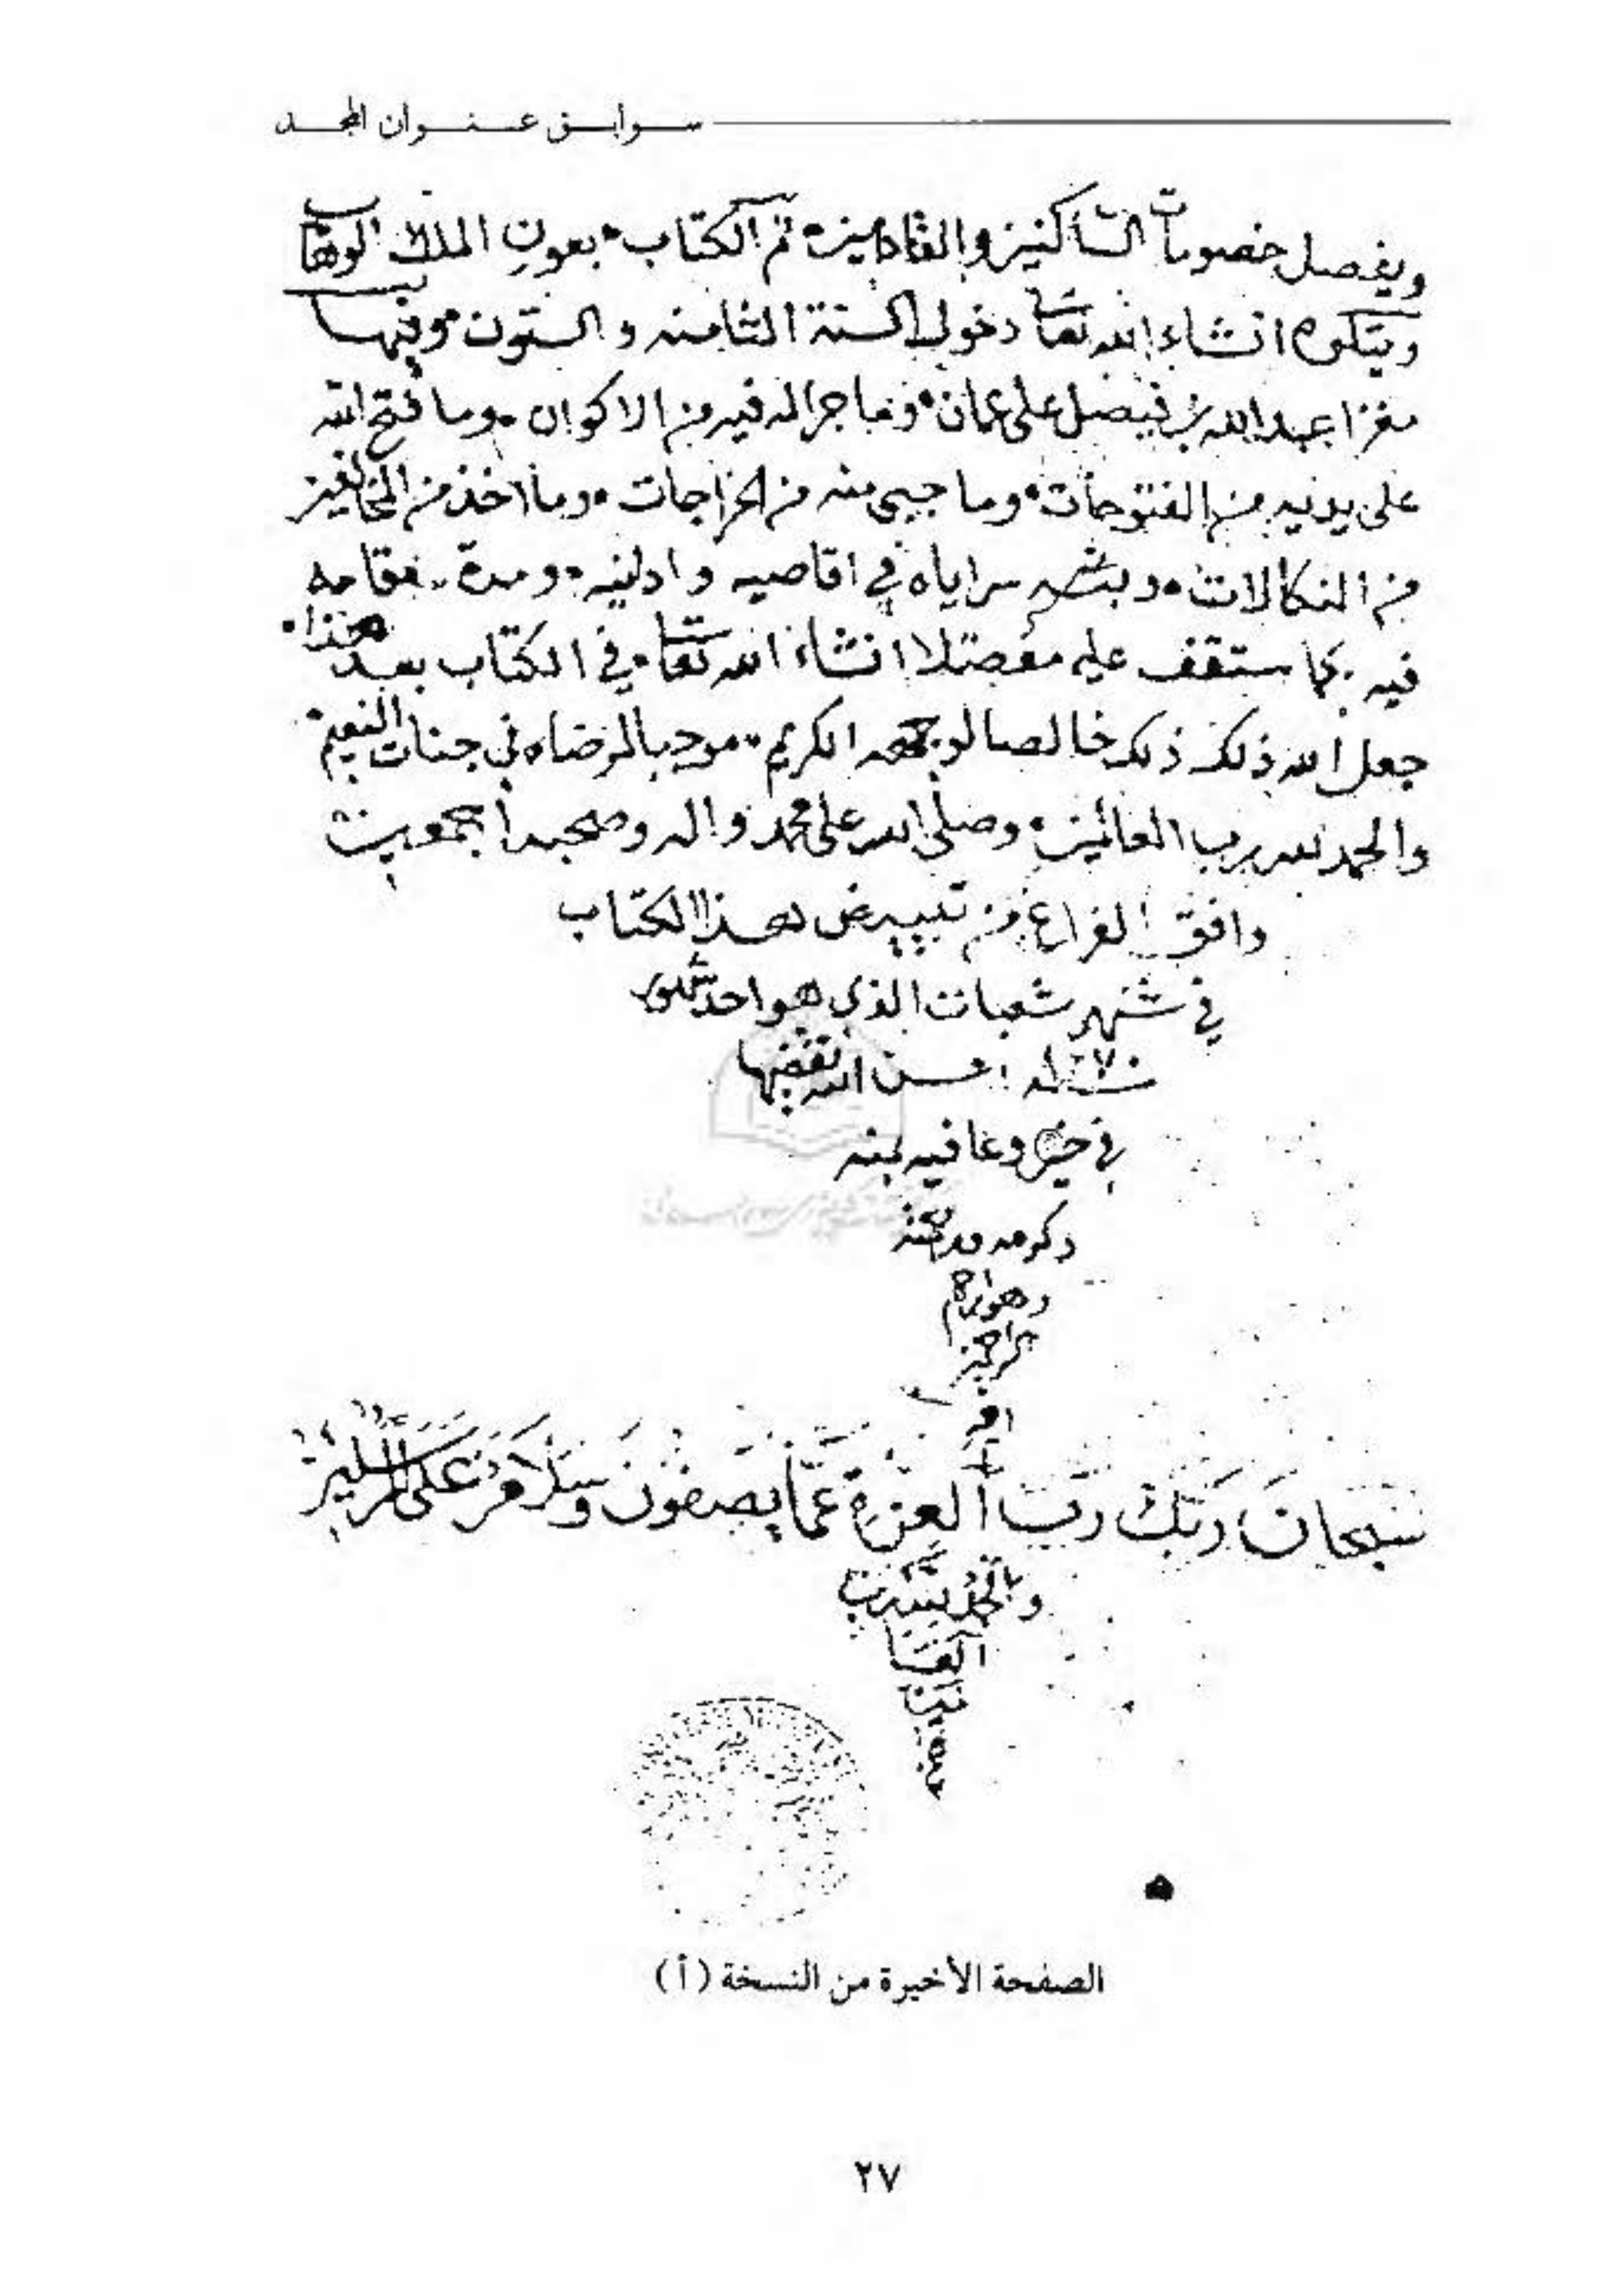 سوابق عنوان المجد
ويفصل خصومات الساكنين والقادمين تم الكتاب بعون الملك الوهاب
ويتلوه انشاء الله تعا دخول السنة الثامنه والستون وفيها
مغزا عبدالله بن فيصل على عمان وما جرا له فيه من الاكوان وما فتح الله
على يديه من الفتوحات وما جبى منه من الخراجات وما اخذ من المخالفين
من النكالات وبث سراياه في اقاصيه وادانيه ومدة مقامه
فيه بما ستقف عليه مفصلا انشاء الله تعا في الكتاب بعد هذا
جعل الله ذلك ذلك خالصا لوجهه الكريم موجبا لرضاه في جنات النعيم
والحمد لله رب العالمين وصلى الله على محمد واله وصحبه اجمعين
وافق الفراغ من تبييض هذا الكتاب
في شهر شعبان الذي هو احد شهور
سنة ١٢٧٠ احسن الله تقضيها
في خير وعافيه بمنه
وكرمه
وهو ارحم
الراحمين
سبحان ربك رب العزة عما يصفون وسلام على المرسلين
والحمد لله رب
العا
لمين
الصفحة الأخيرة من النسخة (أ)
٢٧